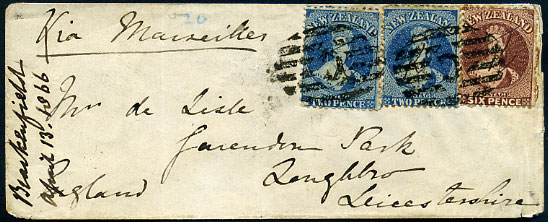 20
Via Marseilles
NEW ZEALAND
POSTAGE
TWO PENCE
NEW ZEALAND
POSTAGE
TWO PENCE
NEW ZEALAND
POSTAGE
SIX PENCE
April 13. 1866
Mrs de Lisle
Garendon Park
Longhbro
Leicestershire
England